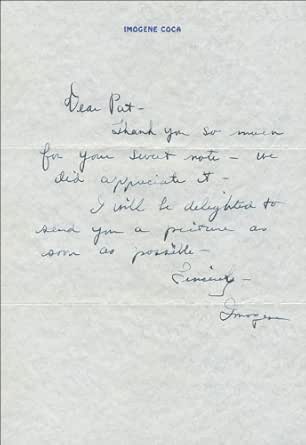 IMOGENE COCA
Dear Pat-
Thank you so much
for your sweet note - we
did appreciate it -
I will be delighted to
send you a picture as
soon as possible -
Sincerely -
Imogene